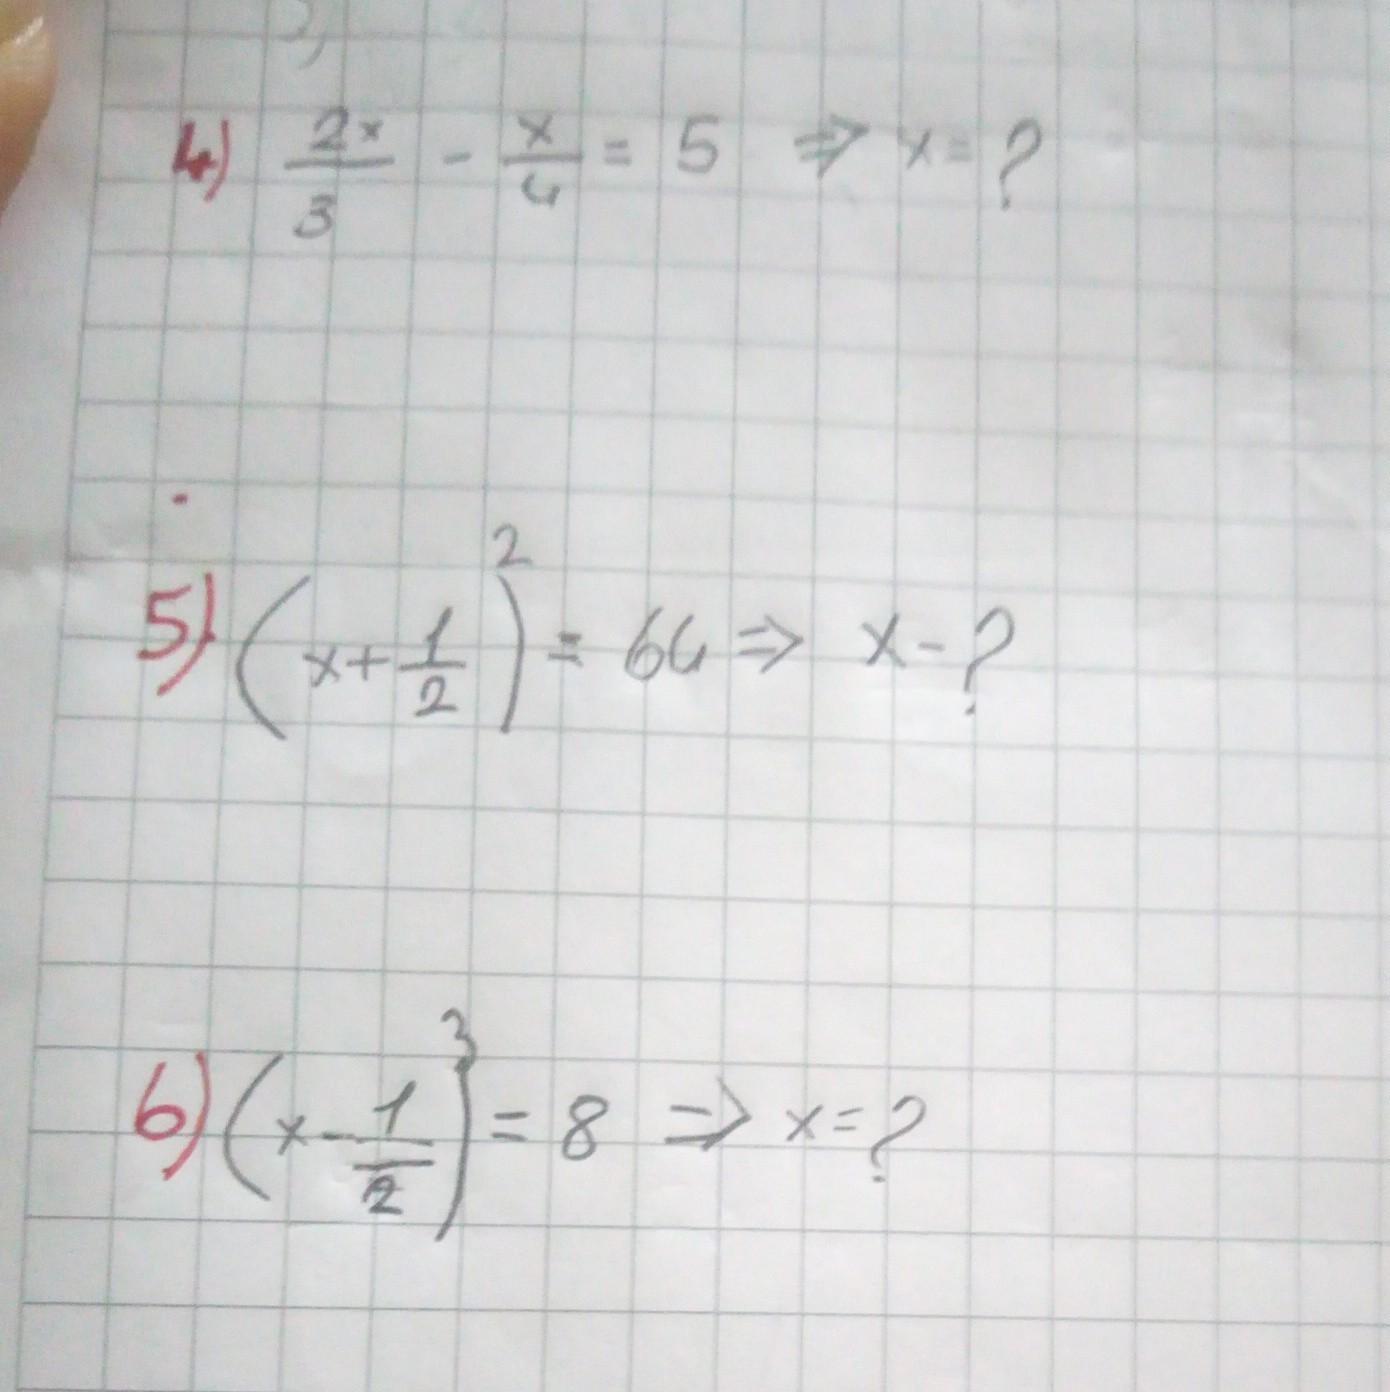 4) 2x/3 - x/4 = 5 ⇒ x = ?
5) (x + 1/2)² = 64 ⇒ x - ?
6) (x - 1/2)³ = 8 ⇒ x = ?